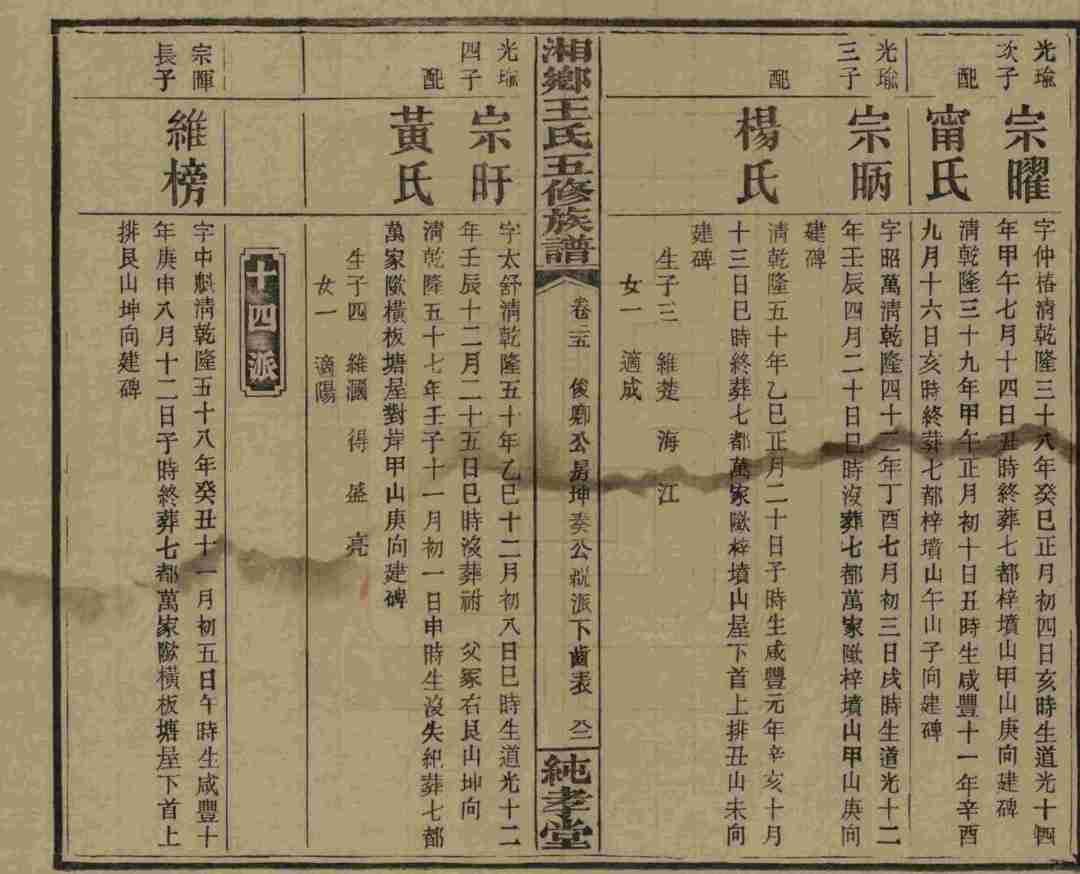 光瑜
次子
宗曜
字仲椿清乾隆三十八年癸巳正月初四日亥時生道光十四
年甲午七月十四日丑時終葬七都梓墳山甲山庚向建碑
配
甯氏
清乾隆三十九年甲午正月初十日丑時生咸豐十一年辛酉
九月十六日亥時終葬七都梓墳山午山子向建碑
光瑜
三子
宗昞
字昭萬清乾隆四十二年丁酉七月初三日戌時生道光十二
年壬辰四月二十日巳時沒葬七都萬家陂梓墳山甲山庚向
建碑
配
楊氏
清乾隆五十年乙巳正月二十日子時生咸豐元年辛亥十月
十三日巳時終葬七都萬家陂梓墳山屋下首上排丑山未向
建碑
生子三 維楚 海 江
女一 適成
湘鄉王氏五修族譜
卷三五 俊卿公房坤奏公派下齒表
純孝堂
光瑜
四子
宗旴
字太舒清乾隆五十年乙巳十二月初八日巳時生道光十二
年壬辰十二月二十五日巳時沒葬祔 父冢右艮山坤向
配
黃氏
清乾隆五十七年壬子十一月初一日申時生沒失紀葬七都
萬家陂橫板塘屋對岸甲山庚向建碑
生子四 維灝 得 盛 亮
女一 適陽
十四派
宗暉
長子
維榜
字中魁清乾隆五十八年癸丑十一月初五日午時生咸豐十
年庚申八月十二日子時終葬七都萬家陂橫板塘屋下首上
排艮山坤向建碑